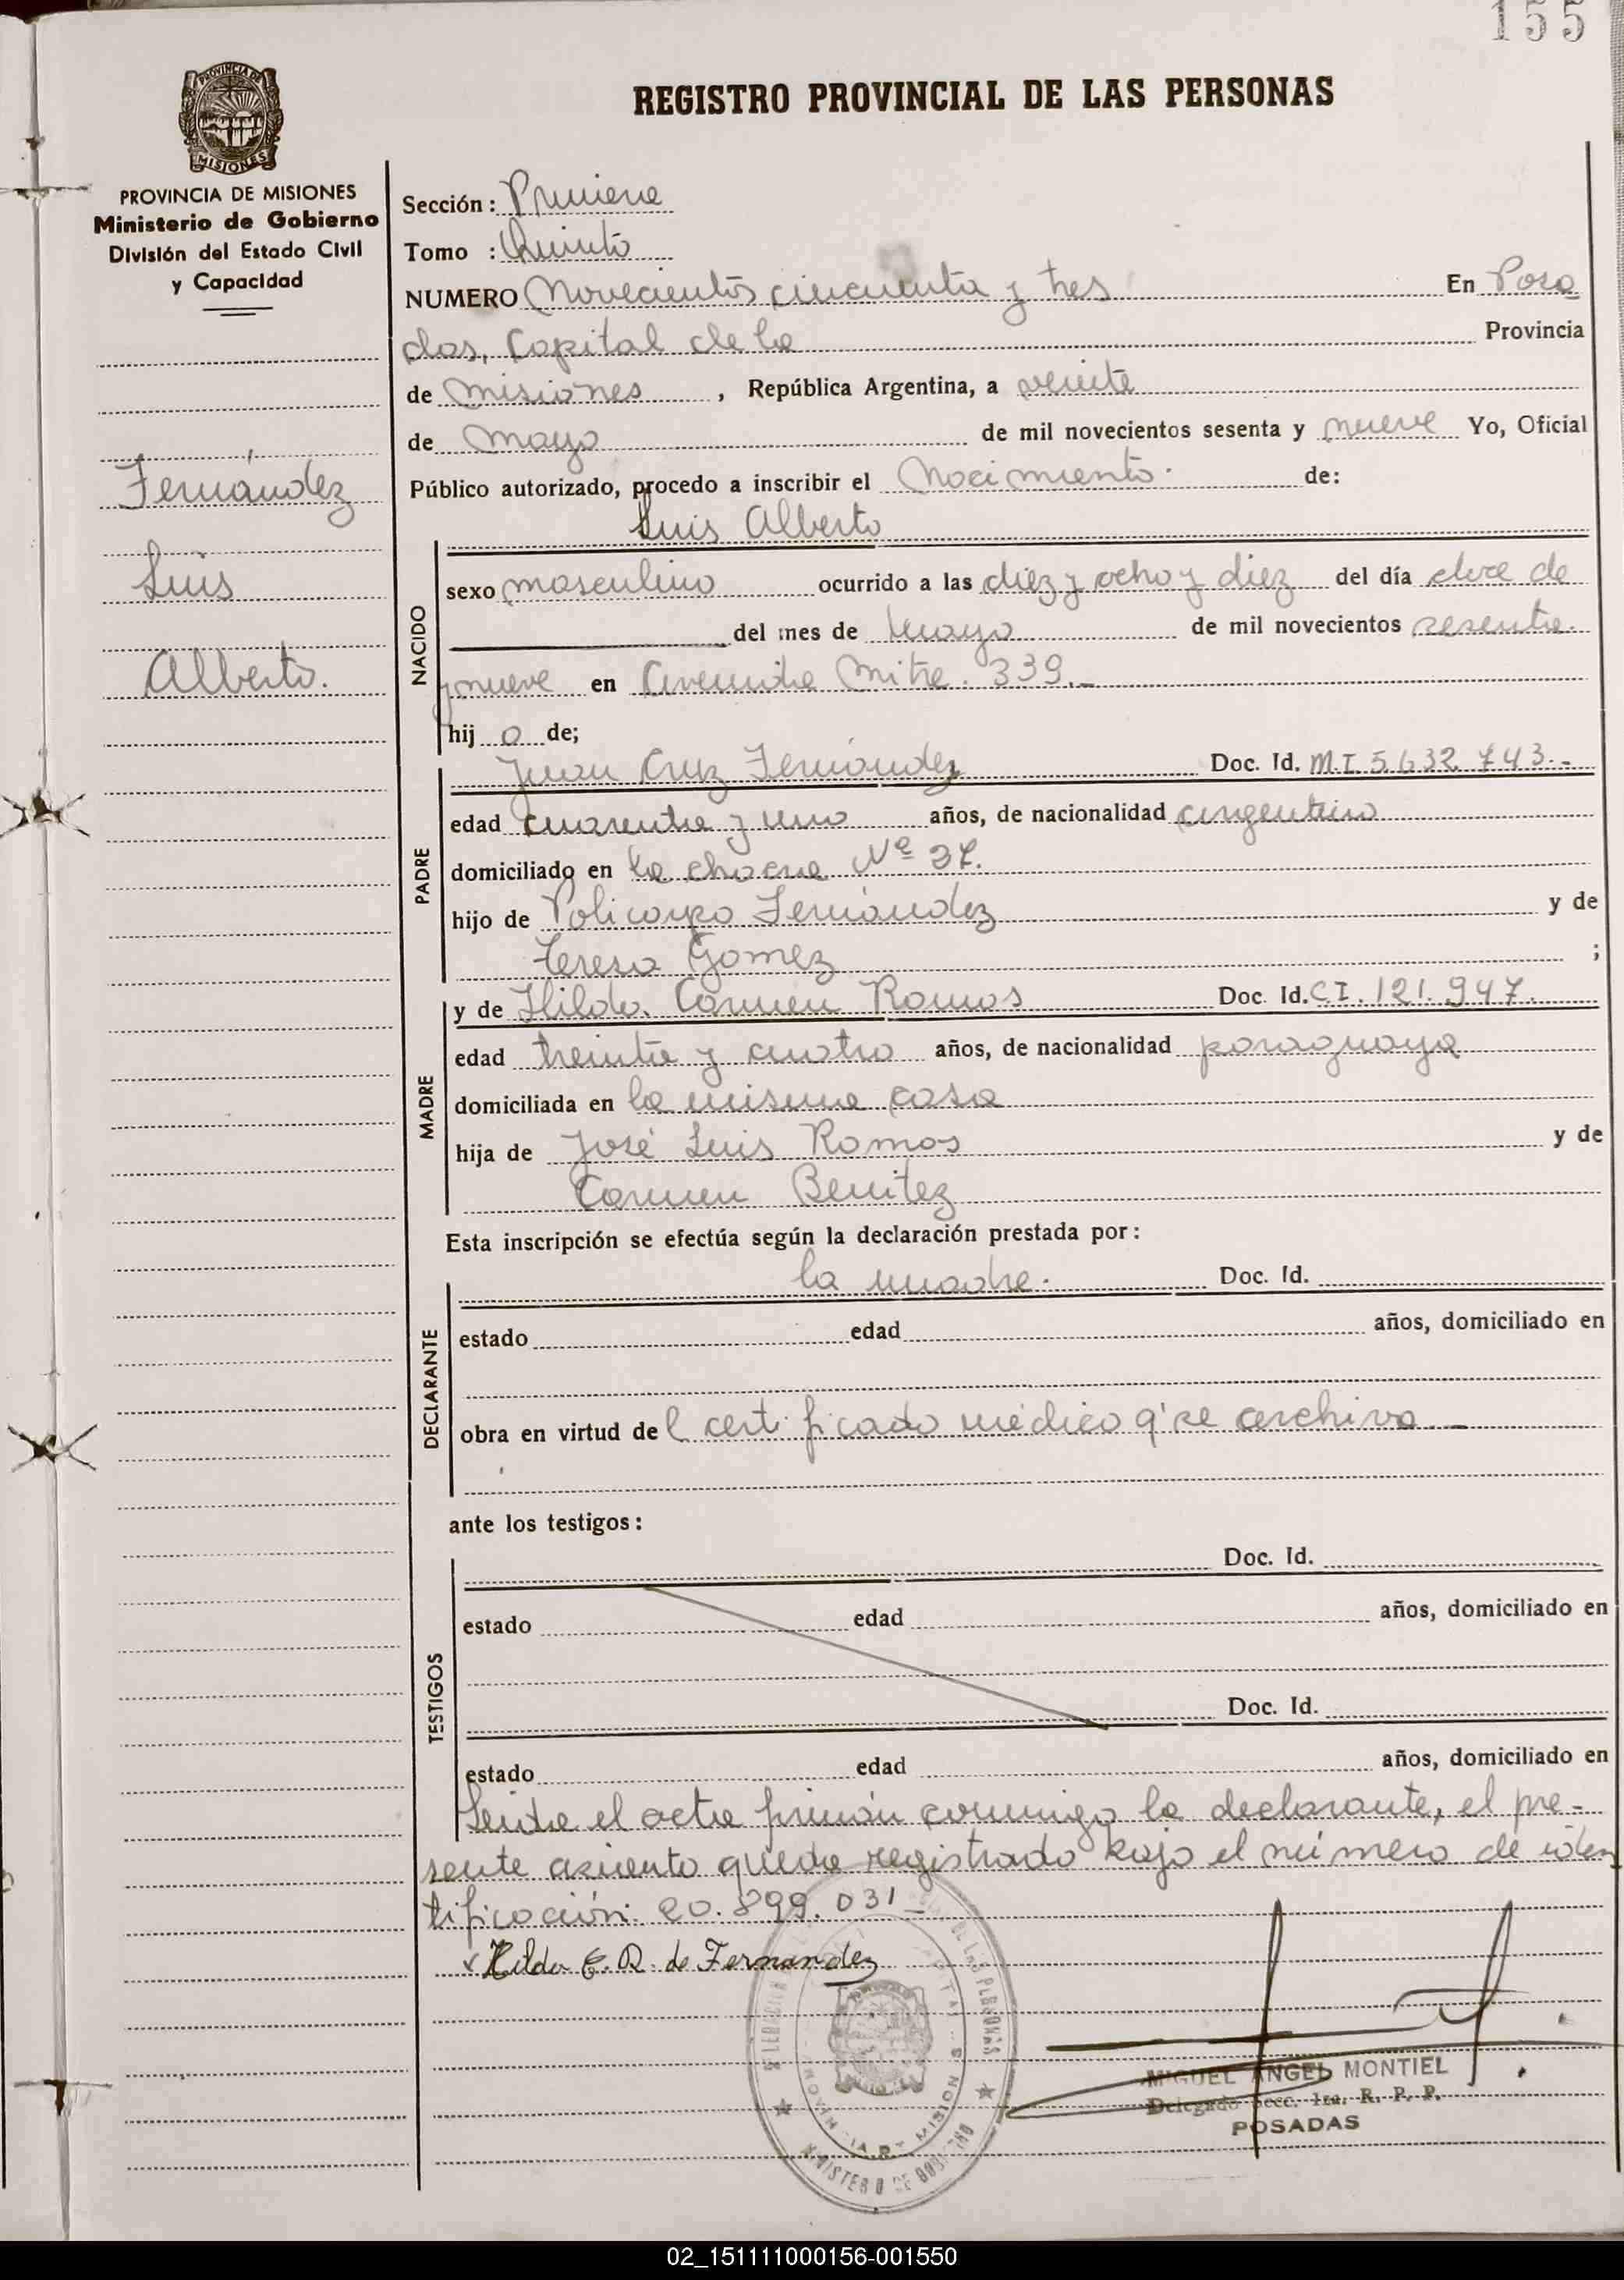 155
PROVINCIA DE
MISIONES
REGISTRO PROVINCIAL DE LAS PERSONAS
PROVINCIA DE MISIONES
Ministerio de Gobierno
División del Estado Civil
y Capacidad
Fernández
Luis
Alberto.
Sección: Primera
Tomo : Quinto
NUMERO Novecientos cincuenta y tres En Posa
das, Capital de la Provincia
de Misiones, República Argentina, a veinte
de mayo de mil novecientos sesenta y nueve Yo, Oficial
Público autorizado, procedo a inscribir el Nacimiento. de:
Luis Alberto
NACIDO
sexo masculino ocurrido a las diez y ocho y diez del día doce de
del mes de Mayo de mil novecientos sesenta.
y nueve en Avenida Mitre. 339.-
hij o de;
PADRE
Juan Cruz Fernández Doc. Id. M.I 5.632.743.-
edad cuarenta y uno años, de nacionalidad argentino
domiciliado en la chacra Nº 37.
hijo de Policarpo Fernández y de
Teresa Gomez ;
MADRE
y de Hilda Carmen Ramos Doc. Id. C.I. 121.947.
edad treinta y cuatro años, de nacionalidad paraguaya
domiciliada en la misma casa
hija de José Luis Ramos y de
Carmen Benitez
Esta inscripción se efectúa según la declaración prestada por:
DECLARANTE
la madre. Doc. Id.
estado edad años, domiciliado en
obra en virtud del certificado médico q' se archiva
ante los testigos:
TESTIGOS
Doc. Id.
estado edad años, domiciliado en
Doc. Id.
estado edad años, domiciliado en
Leida el acta firman conmigo la declarante, el pre-
sente asiento queda registrado bajo el número de iden
tificación: 20.899.031
Hilda C. R. de Fernandez
MIGUEL ANGEL MONTIEL
Delegado Secc. 1ra. R. P. P.
POSADAS
PROVINCIA DE MISIONES
MINISTERIO DE GOBIERNO
02_151111000156-001550